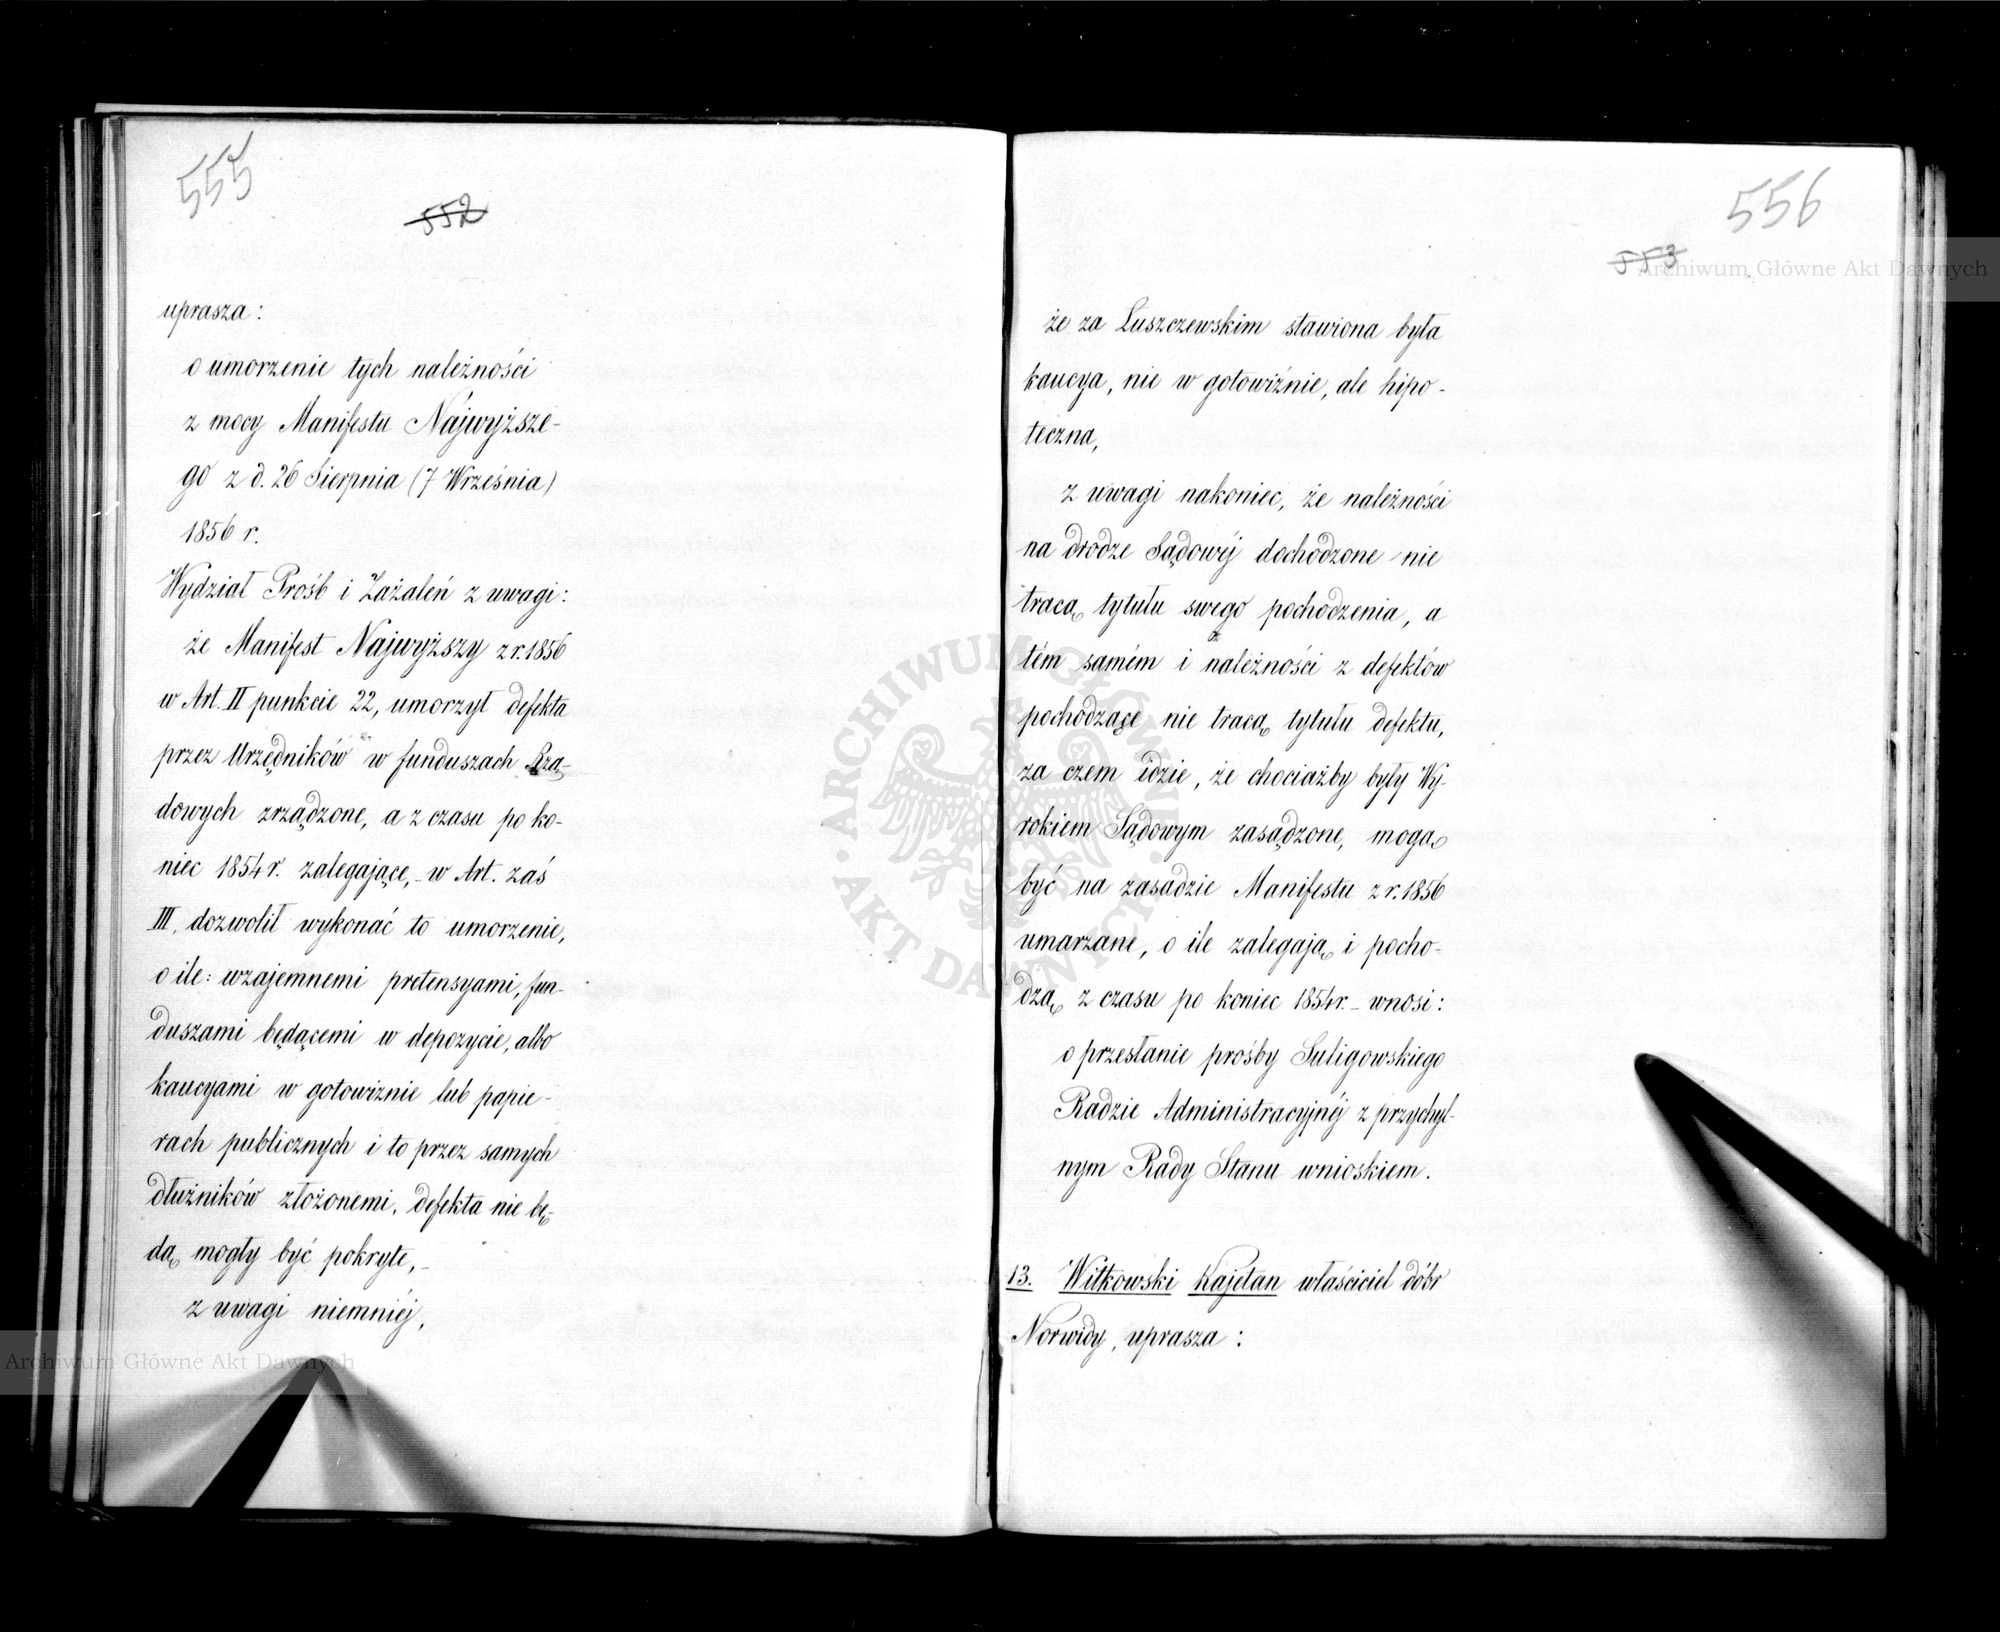 555
552
uprasza:
o umorzenie tych należności
z mocy Manifestu Najwyższe-
go z d. 26 Sierpnia (7 Września)
1856 r.
Wydział Prośb i Zażaleń z uwagi:
że Manifest Najwyższy z r. 1856
w Art. II punkcie 22, umorzył defekta
przez Urzędników w funduszach Rzą-
dowych zrządzone, a z czasu po ko-
niec 1854 r. zalegające, - w Art. zaś
III, dozwolił wykonać to umorzenie,
o ile: wzajemnemi pretensyami, fun-
duszami będącemi w depozycie, albo
kaucyami w gotowiznie lub papie-
rach publicznych i to przez samych
dłużników złożonemi, defekta nie bę-
dą mogły być pokryte, -
z uwagi niemniéj,
556
553
że za Łuszczewskim stawiona była
kaucya, nie w gotowiźnie, ale hipo-
teczna,
z uwagi nakoniec, że należności
na drodze Sądowéj dochodzone nie
tracą tytułu swego pochodzenia, a
tém samém i należności z defektów
pochodzące nie tracą tytułu defektu,
za czem idzie, że chociażby były Wy-
rokiem Sądowym zasądzone, mogą
być na zasadzie Manifestu z r. 1856
umarzane, o ile zalegają i pocho-
dzą z czasu po koniec 1854 r. - wnosi:
o przesłanie prośby Suligowskiego
Radzie Administracyjnéj z przychyl-
nym Rady Stanu wnioskiem.
13. Witkowski Kajetan właściciel dóbr
Norwidy, uprasza:
Archiwum Główne Akt Dawnych
Archiwum Główne Akt Dawnych
ARCHIWUM GŁÓWNE
AKT DAWNYCH